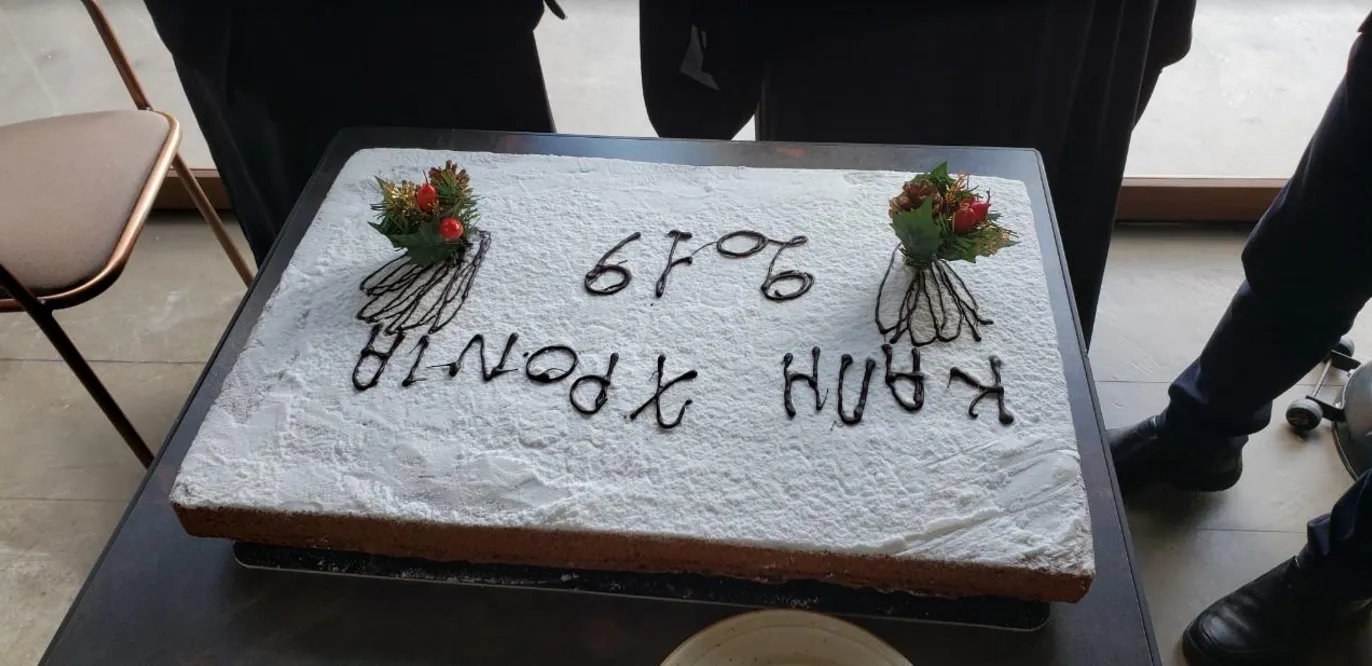 ΚΑΛΗ ΧΡΟΝΙΑ
2019